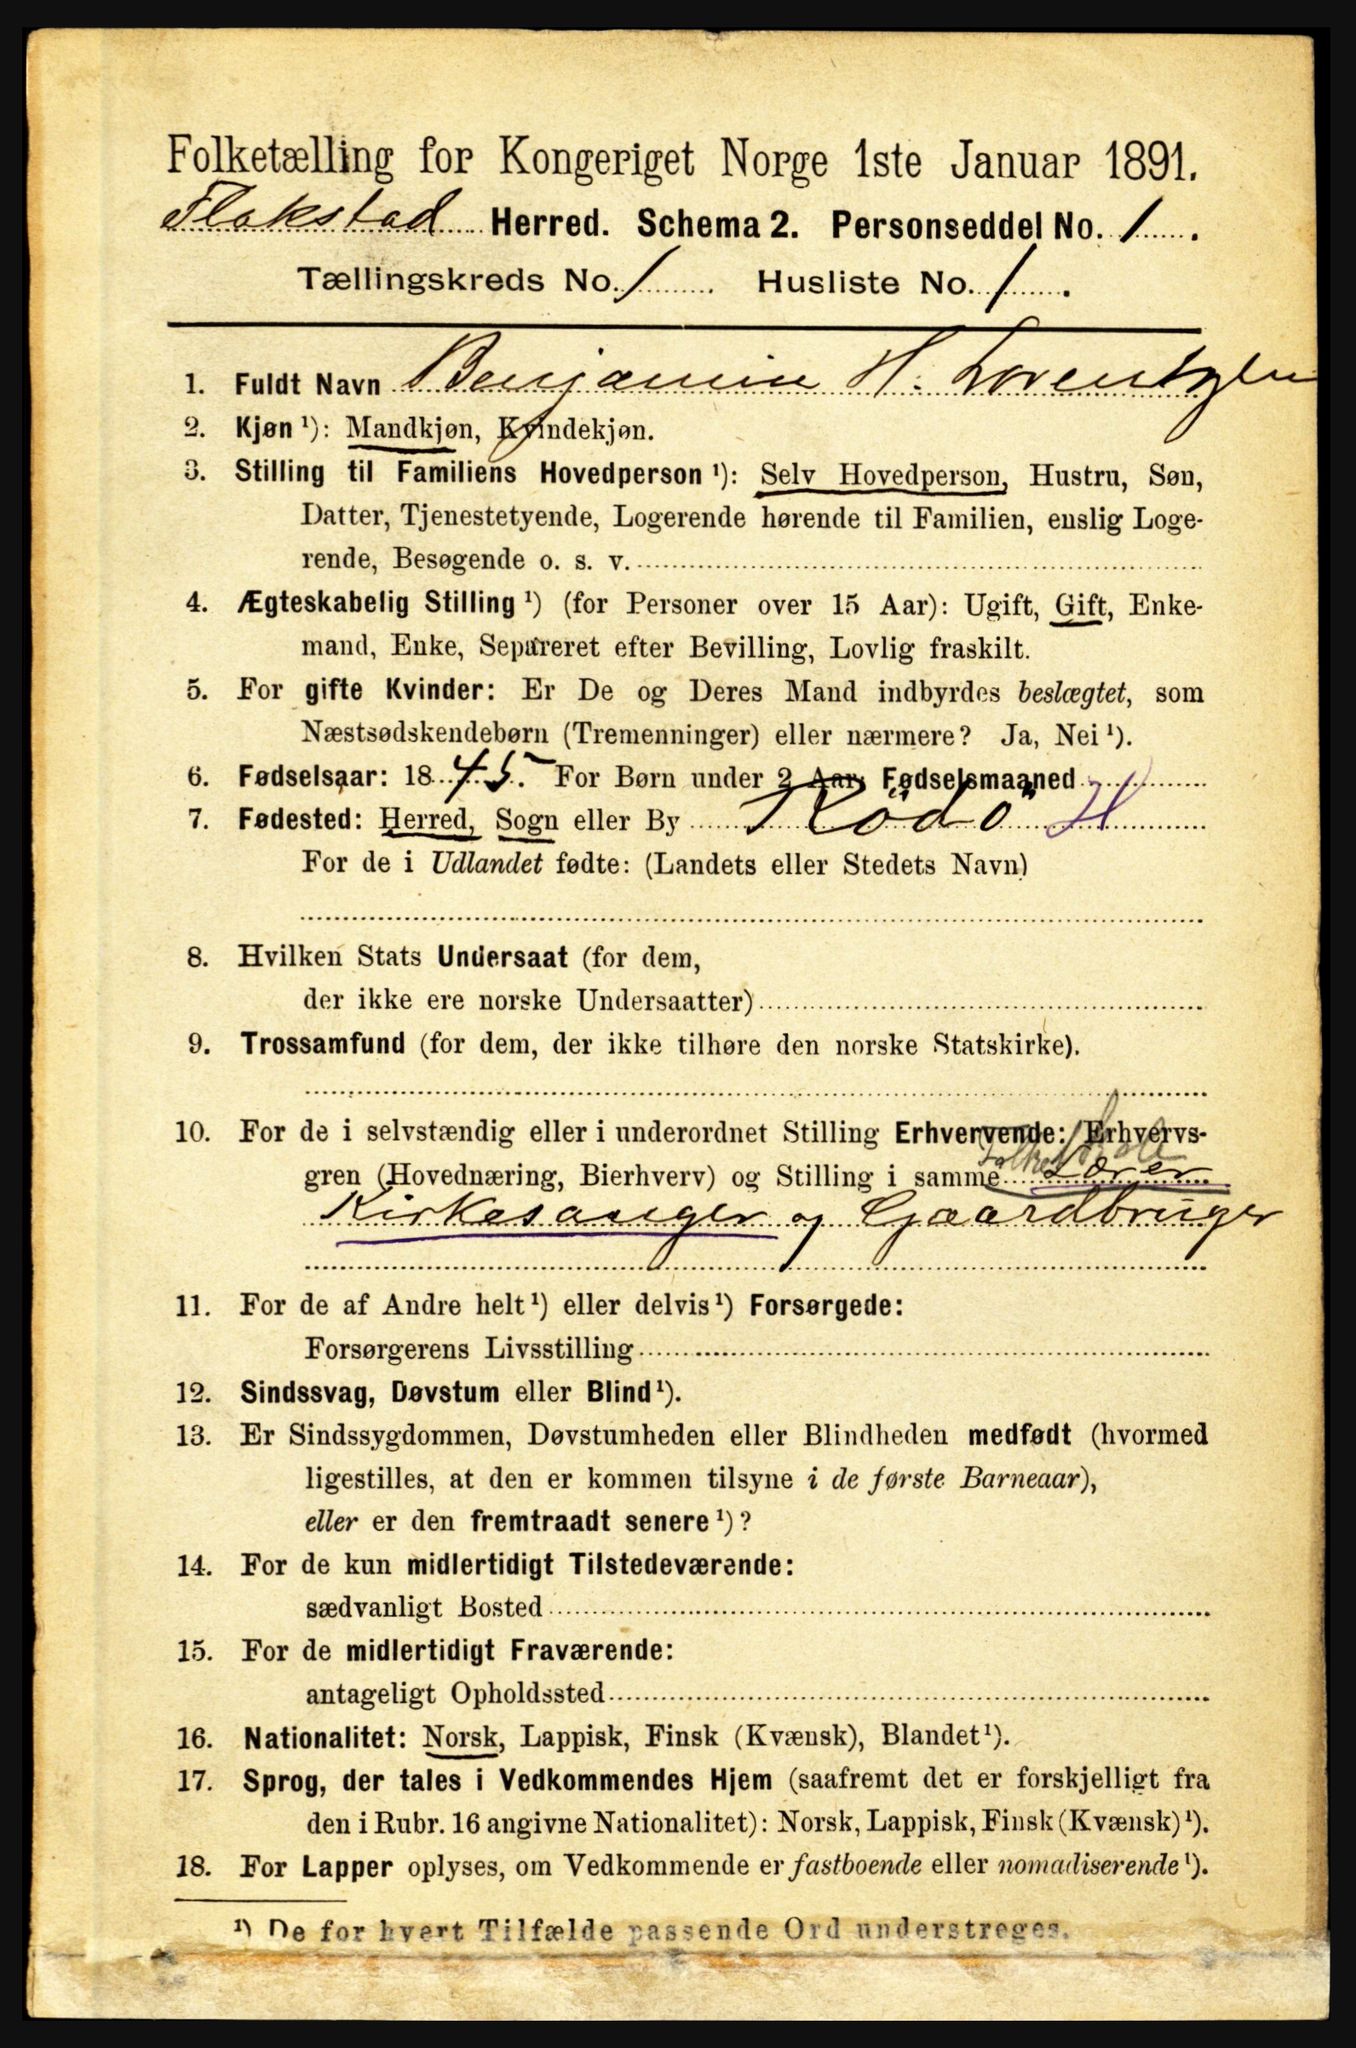 Folketælling for Kongeriget Norge 1ste Januar 1891.
Flakstad Herred. Schema 2. Personseddel No. 1.
Tællingskreds No. 1 Husliste No. 1.
1. Fuldt Navn Benjamin H. Lorentzen
2. Kjøn ¹): Mandkjøn, Kvindekjøn.
3. Stilling til Familiens Hovedperson ¹): Selv Hovedperson, Hustru, Søn,
Datter, Tjenestetyende, Logerende hørende til Familien, enslig Loge-
rende, Besøgende o. s. v.
4. Ægteskabelig Stilling ¹) (for Personer over 15 Aar): Ugift, Gift, Enke-
mand, Enke, Separeret efter Bevilling, Lovlig fraskilt.
5. For gifte Kvinder: Er De og Deres Mand indbyrdes beslægtet, som
Næstsødskendebørn (Tremenninger) eller nærmere? Ja, Nei ¹).
6. Fødselsaar: 1845. For Børn under 2 Aar: Fødselsmaaned
7. Fødested: Herred, Sogn eller By Rödö H
For de i Udlandet fødte: (Landets eller Stedets Navn)
8. Hvilken Stats Undersaat (for dem,
der ikke ere norske Undersaatter)
9. Trossamfund (for dem, der ikke tilhøre den norske Statskirke).
10. For de i selvstændig eller i underordnet Stilling Erhvervende: Erhvervs-
gren (Hovednæring, Bierhverv) og Stilling i samme Folkeskole Lærer
Kirkesanger og Gaardbruger
11. For de af Andre helt ¹) eller delvis ¹) Forsørgede:
Forsørgerens Livsstilling
12. Sindssvag, Døvstum eller Blind ¹).
13. Er Sindssygdommen, Døvstumheden eller Blindheden medfødt (hvormed
ligestilles, at den er kommen tilsyne i de første Barneaar),
eller er den fremtraadt senere ¹)?
14. For de kun midlertidigt Tilstedeværende:
sædvanligt Bosted
15. For de midlertidigt Fraværende:
antageligt Opholdssted
16. Nationalitet: Norsk, Lappisk, Finsk (Kvænsk), Blandet ¹).
17. Sprog, der tales i Vedkommendes Hjem (saafremt det er forskjelligt fra
den i Rubr. 16 angivne Nationalitet): Norsk, Lappisk, Finsk (Kvænsk) ¹).
18. For Lapper oplyses, om Vedkommende er fastboende eller nomadiserende ¹).
¹) De for hvert Tilfælde passende Ord understreges.